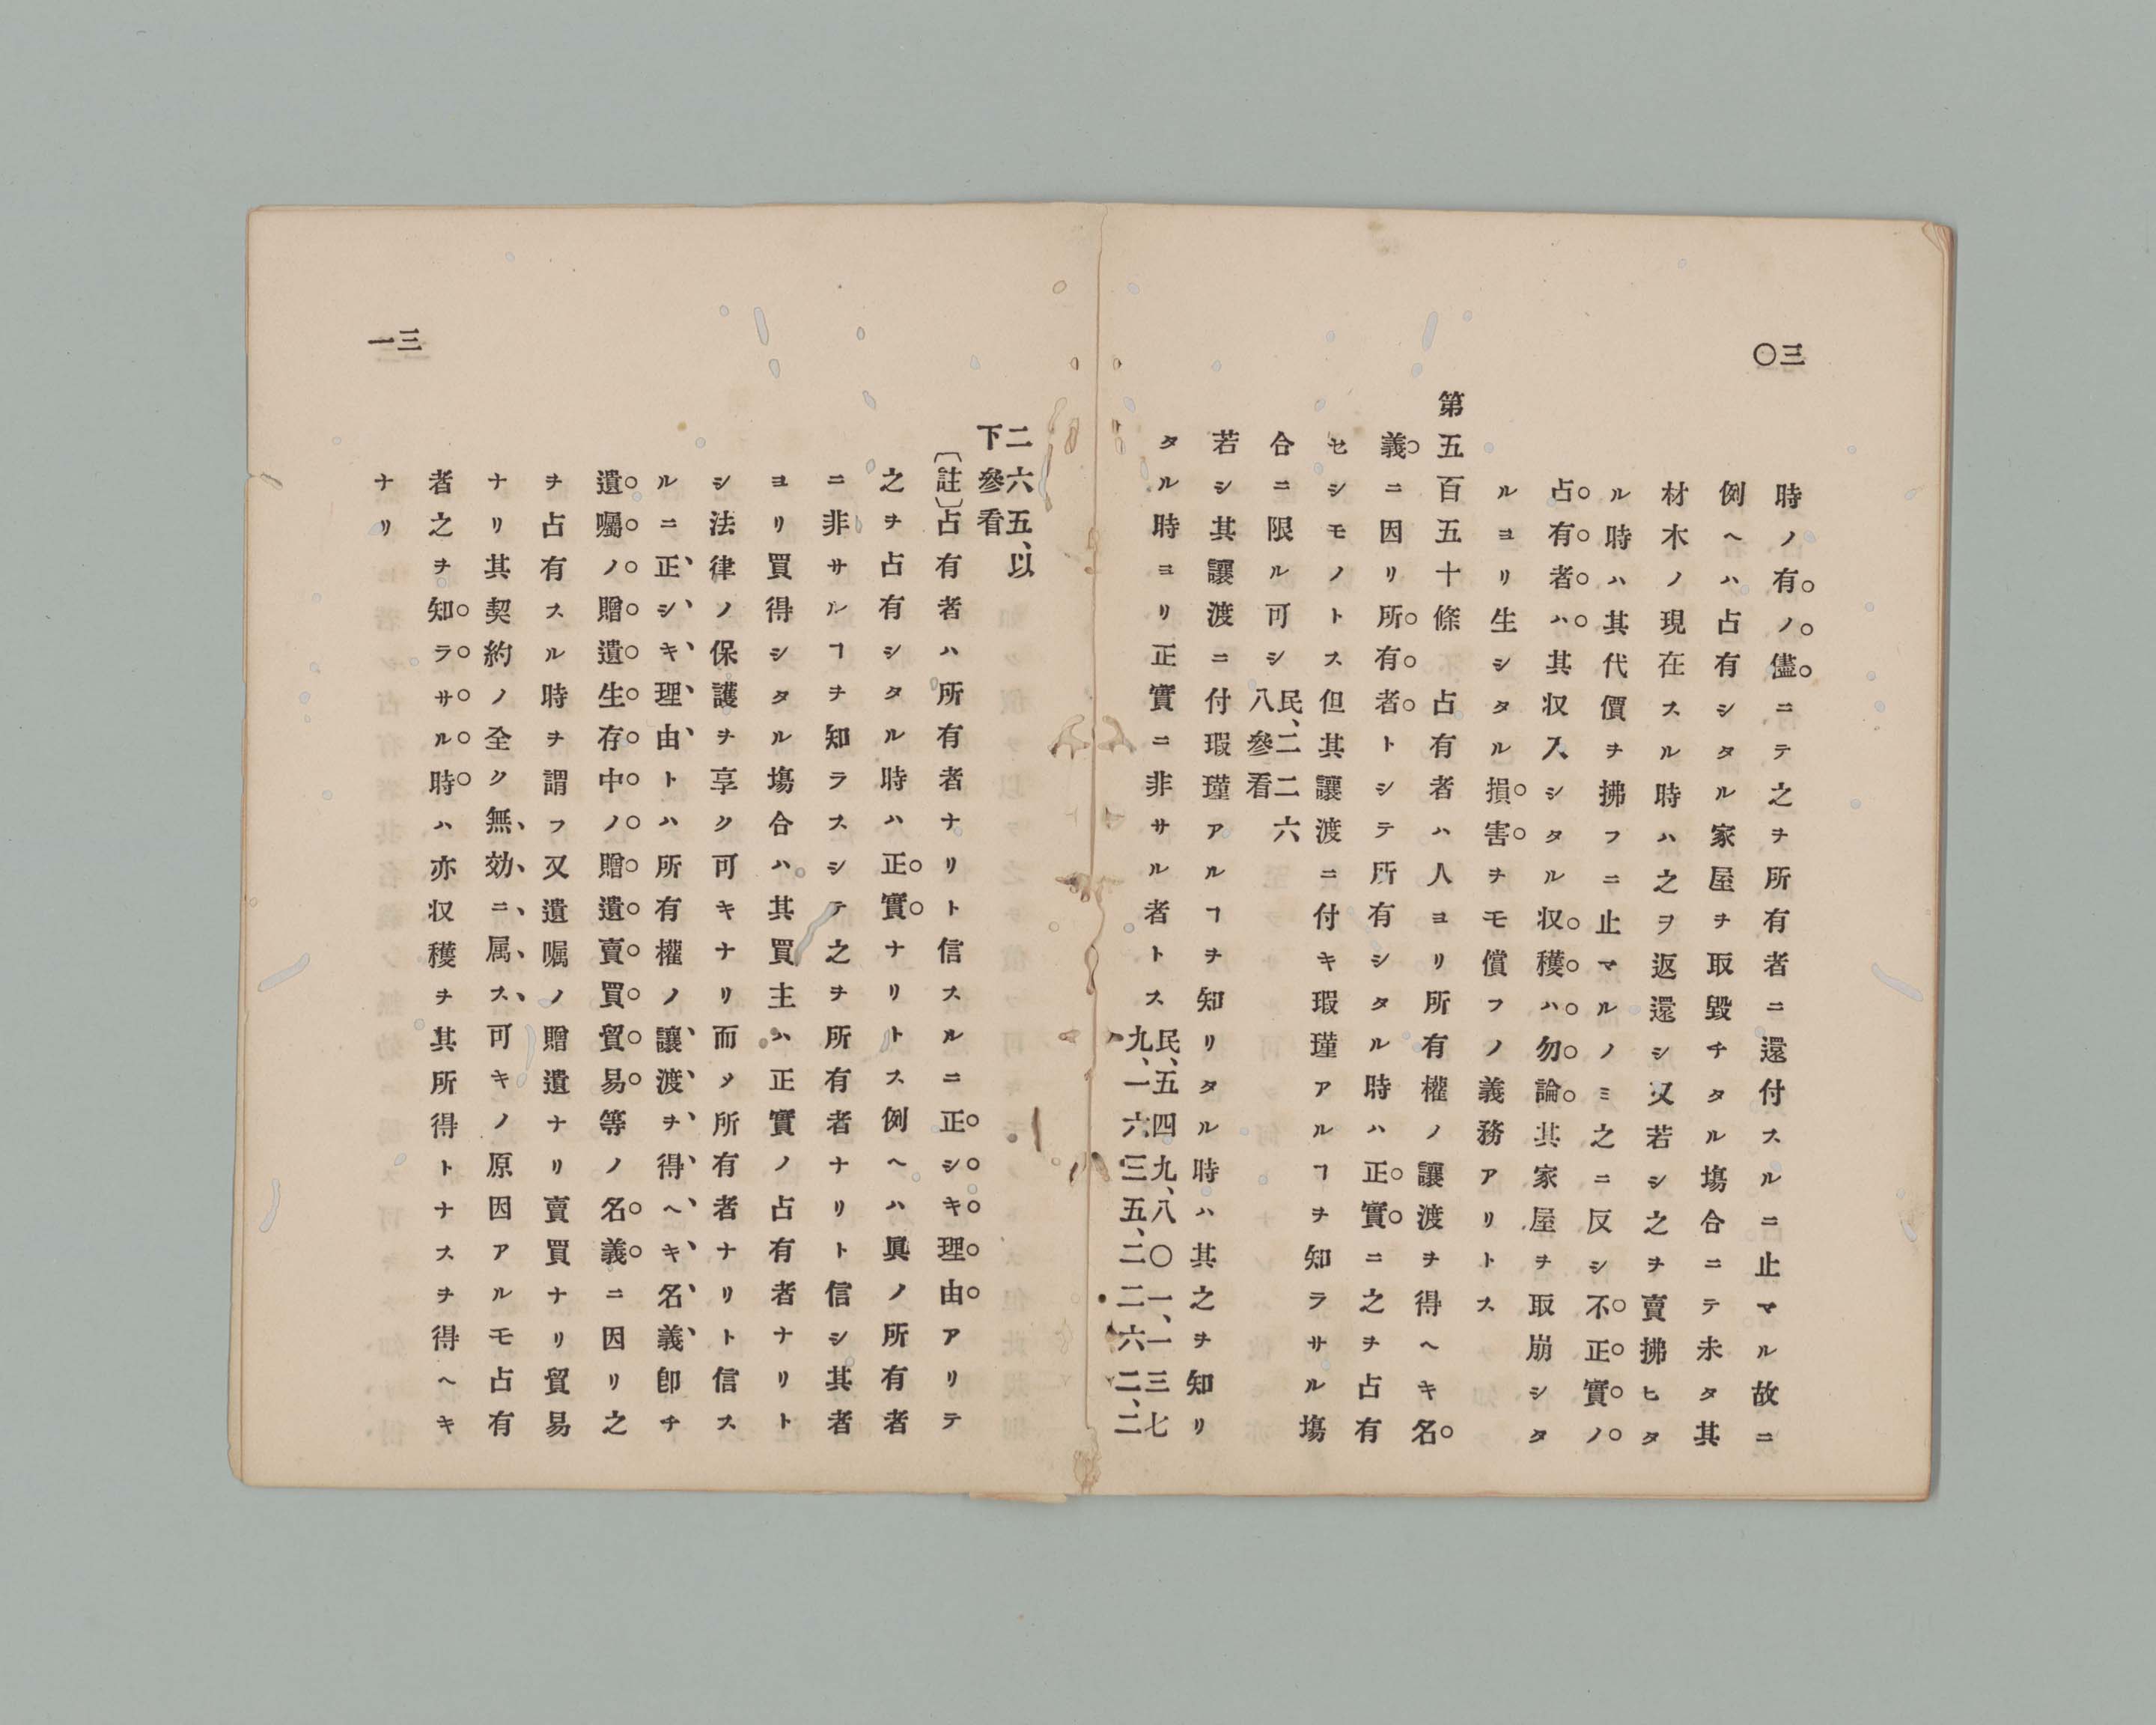 三〇
時ノ有ノ儘ニテ之ヲ所有者ニ還付スルニ止マル故ニ
例ヘハ占有シタル家屋ヲ取毀チタル塲合ニテ未タ其
材木ノ現在スル時ハ之ヲ返還シ又若シ之ヲ賣拂ヒタ
ル時ハ其代價ヲ拂フニ止マルノミ之ニ反シ不正實ノ
占有者ハ其収入シタル収穫ハ勿論其家屋ヲ取崩シタ
ルヨリ生シタル損害ヲモ償フノ義務アリトス
第五百五十條 占有者ハ人ヨリ所有權ノ讓渡ヲ得ヘキ名
義ニ因リ所有者トシテ所有シタル時ハ正實ニ之ヲ占有
セシモノトス但其讓渡ニ付キ瑕瑾アルヿヲ知ラサル塲
合ニ限ル可シ民、二二六
八參看
若シ其讓渡ニ付瑕瑾アルヿヲ知リタル時ハ其之ヲ知リ
タル時ヨリ正實ニ非サル者トス民、五四九、八〇一、一三七
九、一六三五、二二六二、二
三一
二六五、以
下參看
〔註〕占有者ハ所有者ナリト信スルニ正シキ理由アリテ
之ヲ占有シタル時ハ正實ナリトス例ヘハ眞ノ所有者
ニ非サルヿヲ知ラスシテ之ヲ所有者ナリト信シ其者
ヨリ買得シタル塲合ハ其買主ハ正實ノ占有者ナリト
シ法律ノ保護ヲ享ク可キナリ而〆所有者ナリト信ス
ルニ正シキ理由トハ所有權ノ讓渡ヲ得ヘキ名義卽チ
遺囑ノ贈遺生存中ノ贈遺賣買貿易等ノ名義ニ因リ之
ヲ占有スル時ヲ謂フ又遺囑ノ贈遺ナリ賣買ナリ貿易
ナリ其契約ノ全ク無効ニ属ス可キノ原因アルモ占有
者之ヲ知ラサル時ハ亦収穫ヲ其所得トナスヲ得ヘキ
ナリ